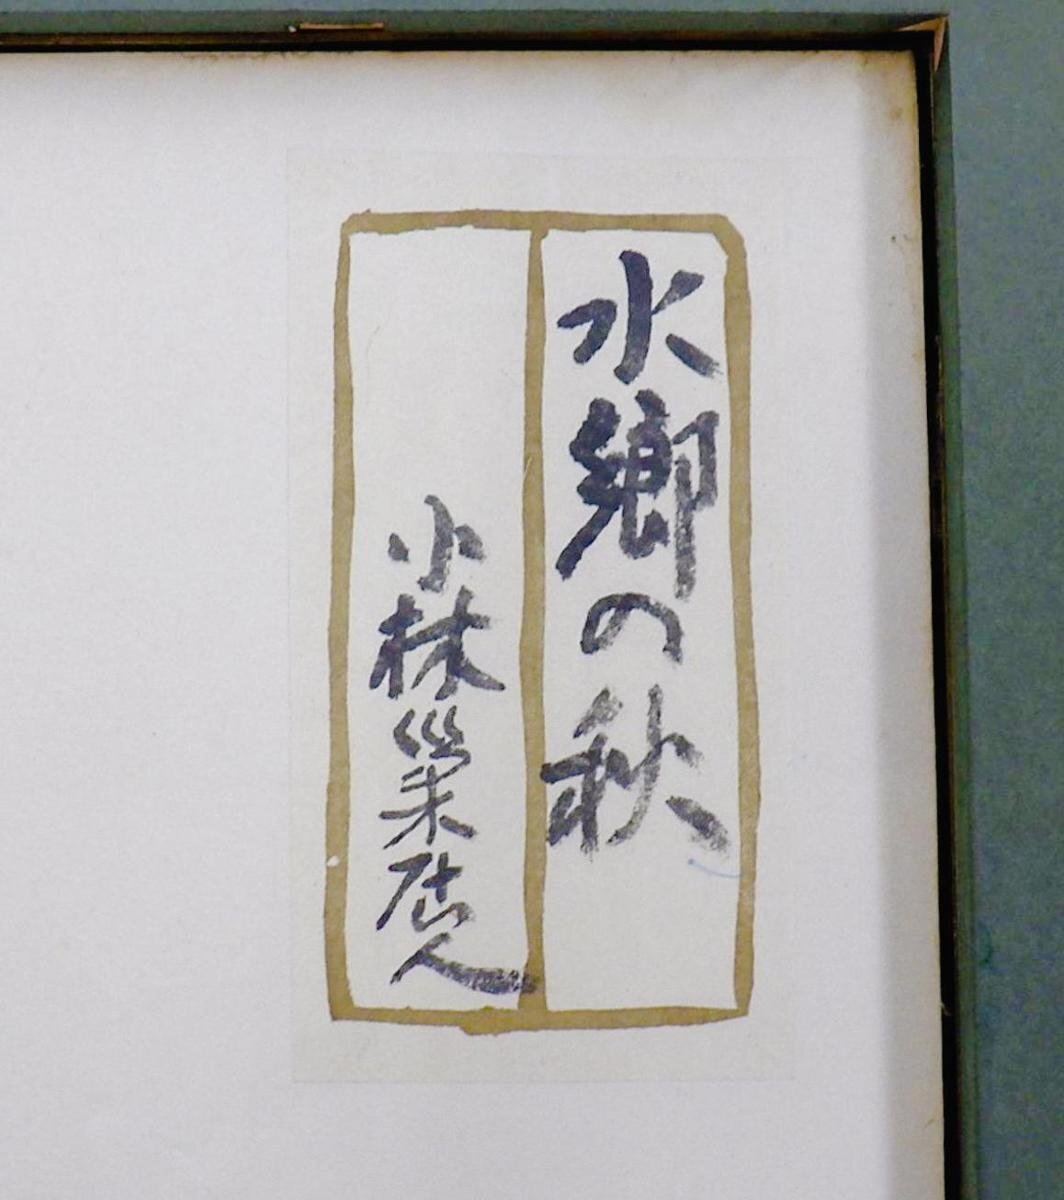 水郷の秋
小林巣居人